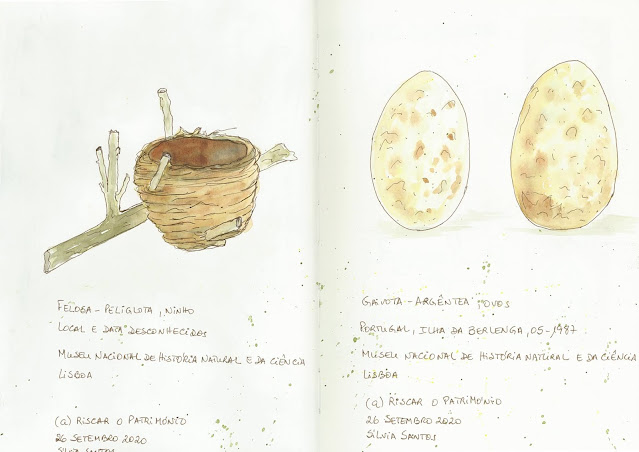 FELOSA - POLIGLOTA, NINHO
LOCAL E DATA DESCONHECIDOS
MUSEU NACIONAL DE HISTÓRIA NATURAL E DA CIÊNCIA
LISBOA
(a) RISCAR O PATRIMÓNIO
26 SETEMBRO 2020
SÍLVIA SANTOS
GAIVOTA - ARGÊNTEA, OVOS
PORTUGAL, ILHA DA BERLENGA, 05-1987
MUSEU NACIONAL DE HISTÓRIA NATURAL E DA CIÊNCIA
LISBOA
(a) RISCAR O PATRIMÓNIO
26 SETEMBRO 2020
SÍLVIA SANTOS